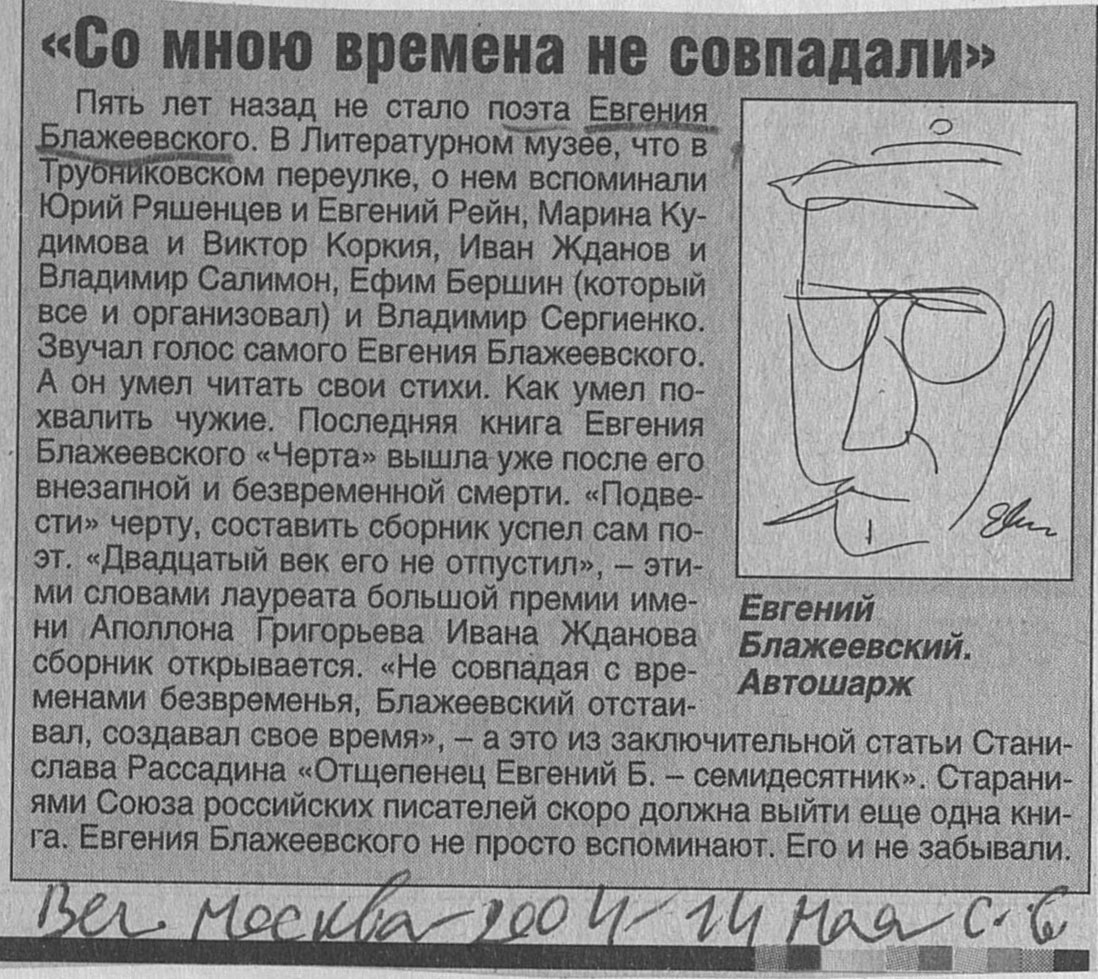 «Со мною времена не совпадали»
Пять лет назад не стало поэта Евгения
Блажеевского. В Литературном музее, что в
Трубниковском переулке, о нем вспоминали
Юрий Ряшенцев и Евгений Рейн, Марина Ку-
димова и Виктор Коркия, Иван Жданов и
Владимир Салимон, Ефим Бершин (который
все и организовал) и Владимир Сергиенко.
Звучал голос самого Евгения Блажеевского.
А он умел читать свои стихи. Как умел по-
хвалить чужие. Последняя книга Евгения
Блажеевского «Черта» вышла уже после его
внезапной и безвременной смерти. «Подве-
сти» черту, составить сборник успел сам по-
эт. «Двадцатый век его не отпустил», – эти-
ми словами лауреата большой премии име-
ни Аполлона Григорьева Ивана Жданова
сборник открывается. «Не совпадая с вре-
менами безвременья, Блажеевский отстаи-
вал, создавал свое время», – а это из заключительной статьи Стани-
слава Рассадина «Отщепенец Евгений Б. – семидесятник». Старани-
ями Союза российских писателей скоро должна выйти еще одна кни-
га. Евгения Блажеевского не просто вспоминают. Его и не забывали.
Евгений
Блажеевский.
Автошарж
Веч. Москва – 2004 – 14 мая – с. 6